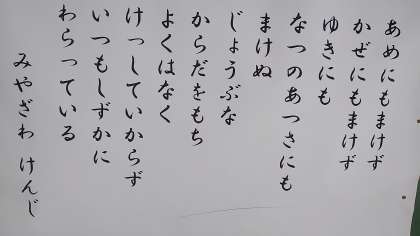 あめにもまけず
かぜにもまけず
ゆきにも
なつのあつさにも
まけぬ
じょうぶな
からだをもち
よくはなく
けっしていからず
いつもしずかに
わらっている
みやざわ けんじ